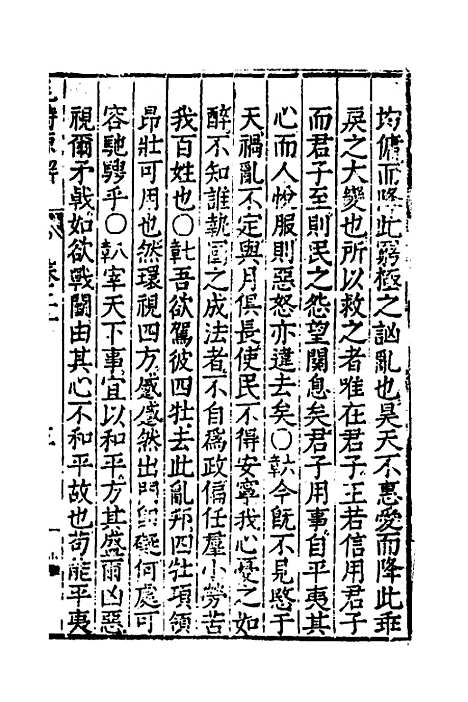 均傭而降此窮極之訩亂也昊天不惠愛而降此乖
戾之大變也所以救之者唯在君子王若信用君子
而君子至則民之怨望闋息矣君子用事自平夷其
心而人悅服則惡怒亦違去矣〇六章今既不見愍于
天禍亂不定與月俱長使民不得安寧我心憂之如
醉不知誰執國之成法者不自爲政偏任羣小勞苦
我百姓也〇七章吾欲駕彼四牡去此亂邦四牡項領
昂壯可用也然環視四方蹙蹙然出門 礙何處可
容馳騁乎〇八章宰天下事宜以和平方其盛爾凶惡
視爾矛戟如欲戰鬬由其心不和平故也苟能平夷